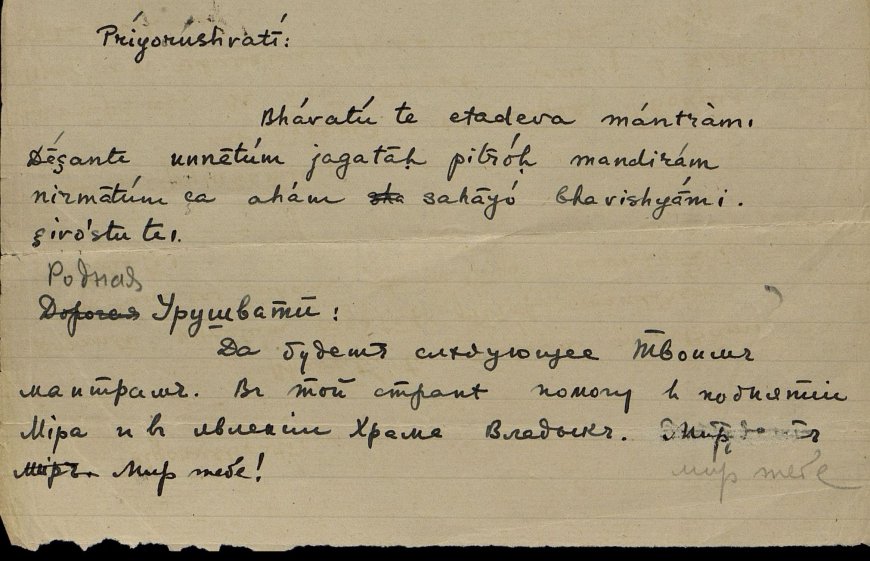 Príyorúshvatí:
Bhávatú te etadeva mántràm.
Dḗçante unnētúm jagatāḥ pitróḥ mandirám
nirmātúm ca ahám sahāyó bhavishyā́mi.
çivo'stu te.
Родная
Дорогая Урушвати:
Да будетъ слѣдующее Твоимъ
мантрамъ. Въ той странѣ помогу въ поднятіи
Міра и въ явленіи Храма Владыкъ. Мир
Миръ Мир тебе!
мир тебе